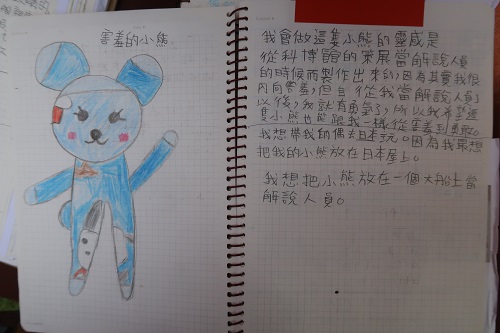 害羞的小熊
我會做這隻小熊的靈感是
從科博館的策展當解說人員
的時候而製作出來的,因為其實我很
內向害羞,但自從我當解說人員了
以後,我就有勇氣了,所以我希望這
隻小熊也能跟我一樣從害羞到勇敢。
我想帶我的偶去日本玩。因為我最想
把我的小熊放在日本屋上。
我想把小熊放在一個大船上當
解說人員。